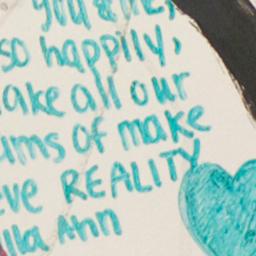 you & me,
so happily,
ake all our
ams of make
eve REALITY
lla Ann